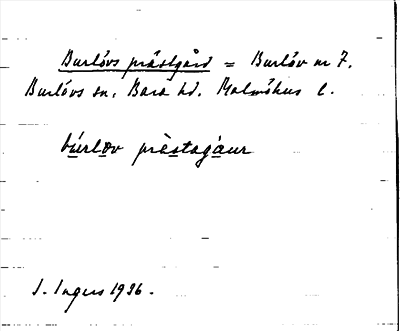 Burlövs prästgård = Burlöv nr 7.
Burlövs sn, Bara hd. Malmöhus l.
búrlɒv prèstagáur
I. Ingers 1936.